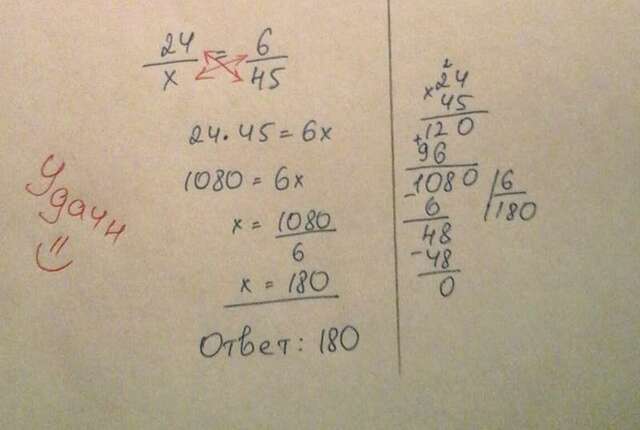 24/x = 6/45
24 · 45 = 6x
1080 = 6x
x = 1080/6
x = 180
Ответ: 180
Удачи
2
× 24
45
120
+
96
1080 | 6
- 6 | 180
48
- 48
0